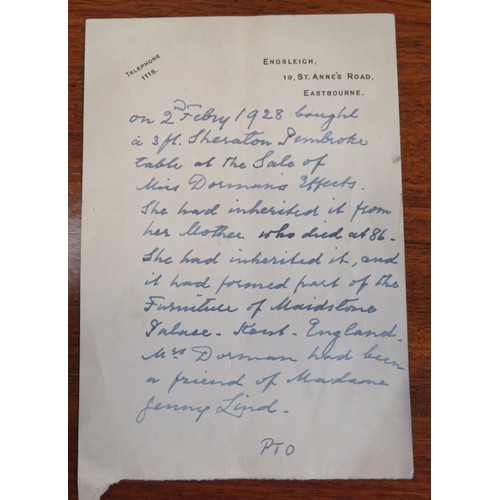 TELEPHONE
1115.
ENDSLEIGH,
19, ST. ANNE'S ROAD,
EASTBOURNE.
on 2nd Febry 1928 bought
a 3ft. Sheraton Pembroke
table at the Sale of
Miss Dorman's Effects.
She had inherited it from
her Mother who died at 86-
She had inherited it, and
it had formed part of the
Furniture of Maidstone
Palace - Kent - England-
Mrs Dorman had been
a friend of Madame
Jenny Lind -
PTO